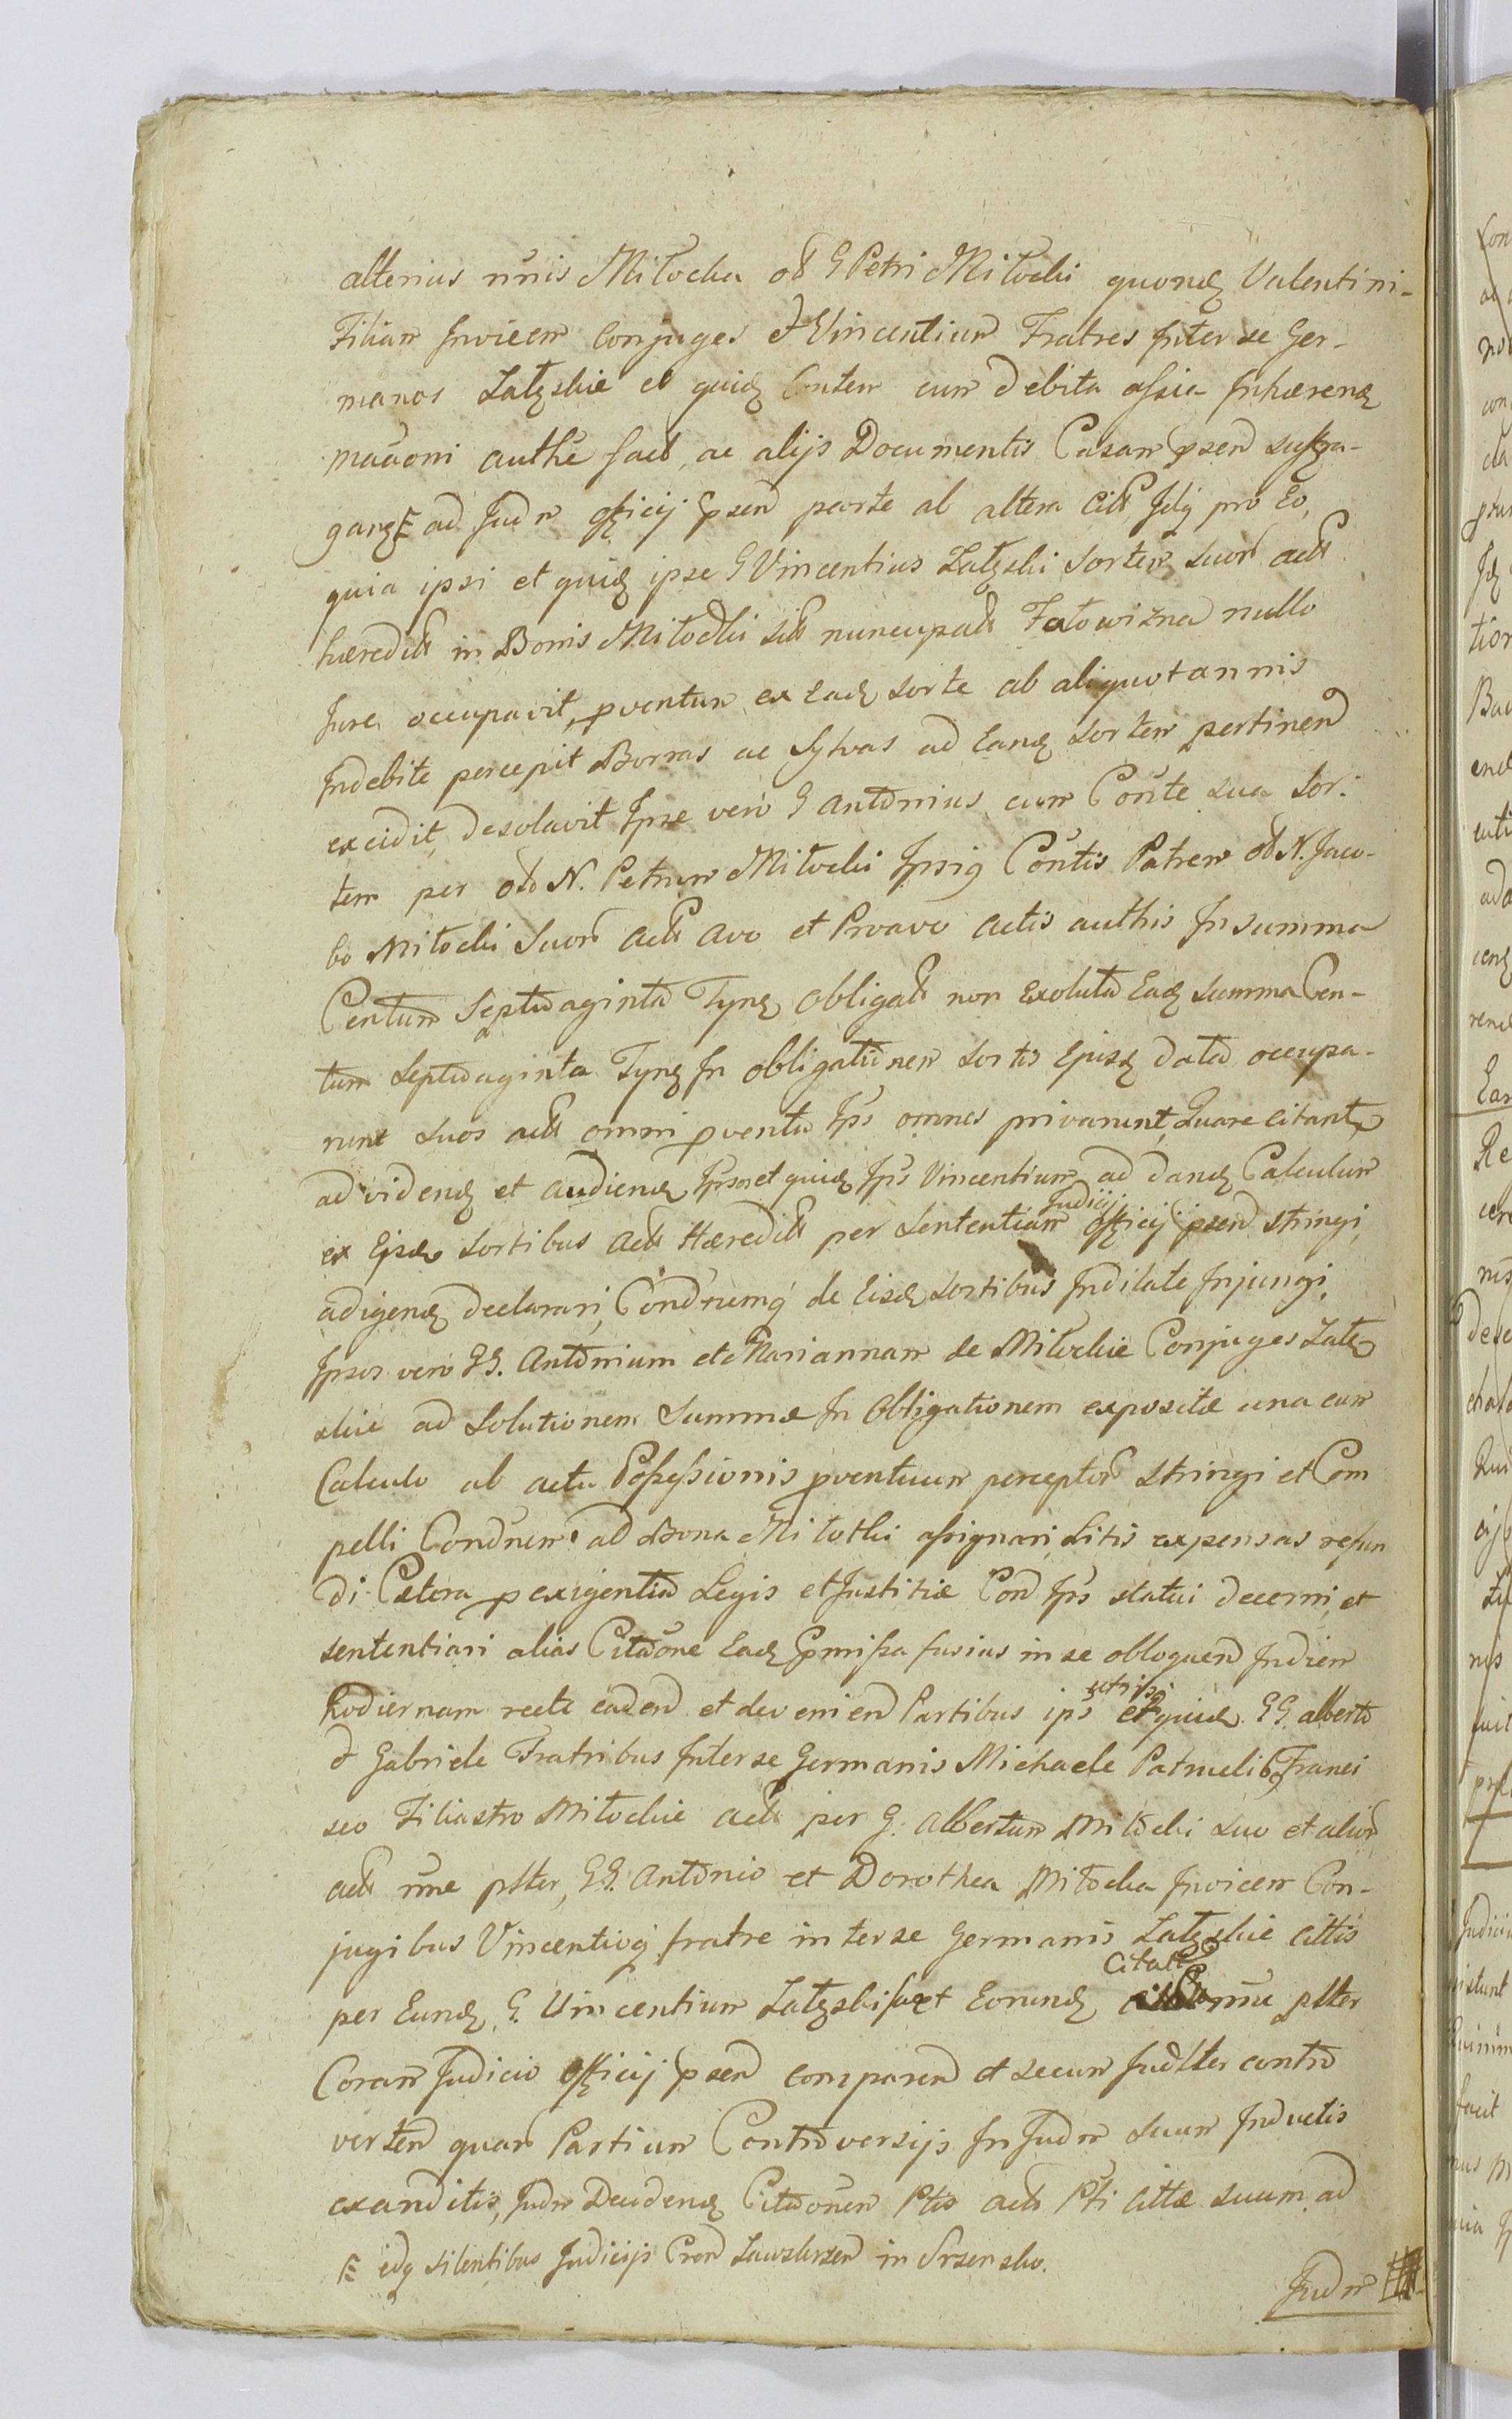 alterius nūnis Miłocka oł G Petri Miłocki quonđ Valentini-
Filiam Invicem Conjuges & Vincentium Fratres Inter se Ger-
manos Załęskie et quiđ Contem cum debita assia Inhærenđ
mãõni authē fact, ac alijs Documentis Causam p̄send suffra-
gang ad Judm officij p̄send parte ab altera Citt, Idq pro Eo,
quia ipsi et quiđ ipse G Vincentius Załęski Sortem suor act
hæredit in Bonis Miłocki sitt nuncupatt Fatowizna nullo
Jure occupavit, pventum ex Eađ sorte ab aliquot annis
Indebite percepit Borras ac Sylvas ad Eanđ Sortem pertinend
excidit, desolavit Ipse vero G Antonius cum Conte sua Sor-
tem per oł N. Petrum Miłocki Ipsiq Contis Patrem oł N. Jaco-
bo Miłocki Suor Act Avo et Proavo actis authis In summa
Centum Septuaginta Tynf obligatt non Exoluta Eađ Summa Cen-
tum Septuaginta Tynf In obligationem Sortis Ejusđ data occupa-
runt Suos act omni pventu Ips omnes privarunt, Quare citantr
ad videnđ et audienđ Ipsos et quiđ Ips Vincentium ad danđ Calculum
ex Ejsđ Sortibus Act Hæredit per Sententiam Judicij officij p̄send stringi,
adigenđ declarari, Condnemq de Eisđ Sortibus Indilate Injungi,
Ipsos vero GG. Antonium et Mariannam de Miłockie Conjuges Załę
skie ad Solutionem Summæ In Obligationem expositæ una cum
Calculo ab actu Possessionis pventuum perceptor stringi et Com
pelli Condnem ad Bona Miłocki assignari, Litis expensas refun
di Cætera p exigentia Legis et Justitiæ Cond Ips statui decerni, et
sententiari alias Citaone Eađ p̄missa fusius in se obloquend Indiem
hodiernam recte cadend et deveniend Partibus ips utrisq et quiđ GG. Alberto
& Gabriele Fratribus Inter se Germanis Michaele Patruelibq Franci
sco Filiastro Miłockie act per G. Albertum Miłocki Suo et alior
act nne pltter, GG. Antonio et Dorothea Miłocka Invicem Con-
jugibus Vincentioq fratre inter se Germanis Załęskie citis
per Eunđ G. Vincentium Załęski suo et Eorunđ Citatt nne pltter
Coram Judicio officij p̄send comparend et secum Judltter contro
vertend quar Partium Controversijs In Judm suum Inductis
exanditis, Judm Decidenđ Citaonem Ptis act Pti Cittæ suum ad
edq silentibus Judicijs Crend Zawskrzen in Srzensko.
Judm